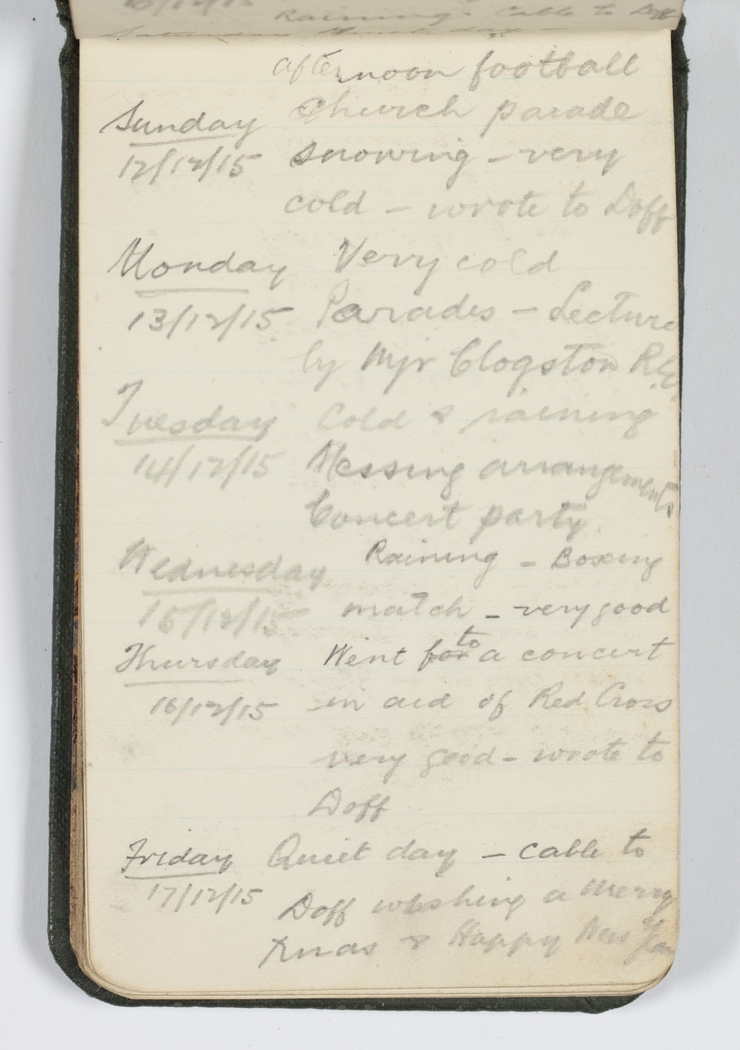 Raining. Cable to Doff
afternoon football
Sunday Church parade
12/12/15 snowing - very
cold - wrote to Doff
Monday Very cold
13/12/15 Parades - Lecture
by Mjr Clogston R.E.
Tuesday Cold & raining
14/12/15 Messing arrangements
Concert party.
Wednesday Raining - Boxing
15/12/15 match - very good
Thursday Went for to a concert
16/12/15 in aid of Red Cross
very good - wrote to
Doff
Friday Quiet day - cable to
17/12/15 Doff wishing a Merry
Xmas & Happy New Year